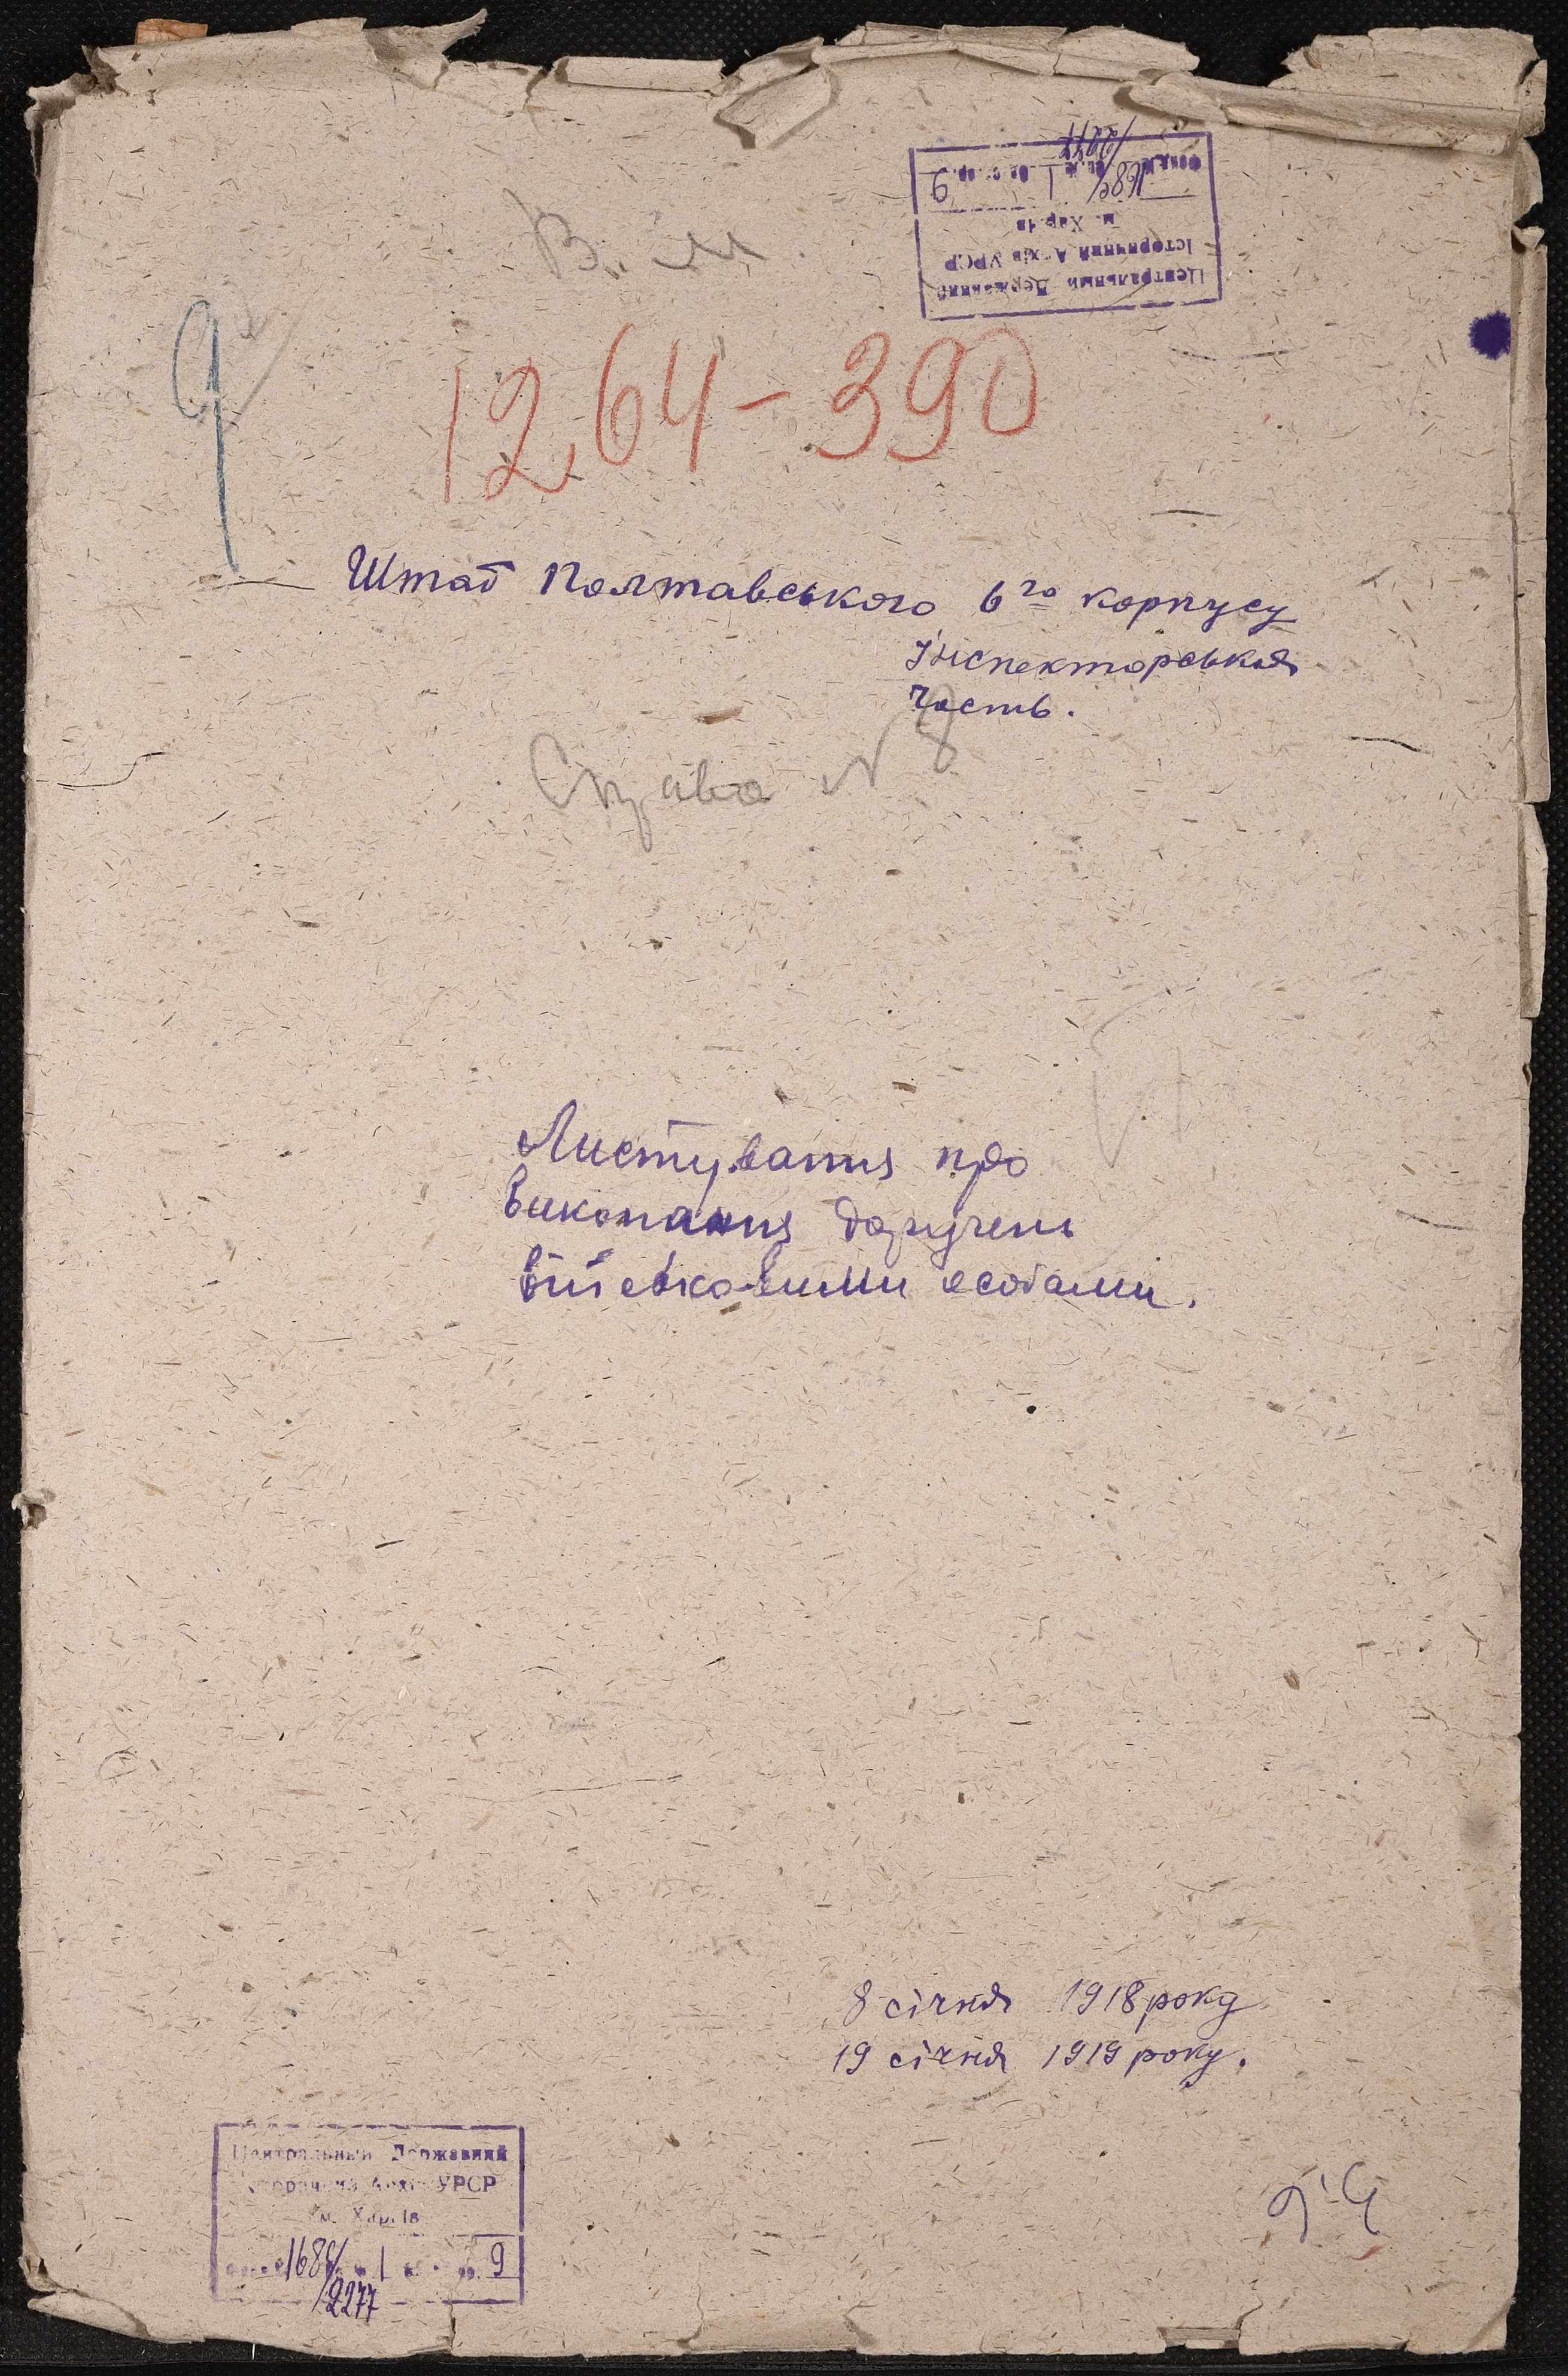 Центральный Державний
Історичний Архів УРСР
м. Харків
Фонд № 168с/2277 Оп. № 1 Од. зб. 9
9
1264-390
Штаб Полтавського 6го корпусу
Інспекторська
Часть.
Справа № 8
Листування про
виконання доручень
військовими особами.
8 січня 1918 року
19 січня 1919 року.
Центральный Державний
Історичний Архів УРСР
м. Харків
1 9
/2277